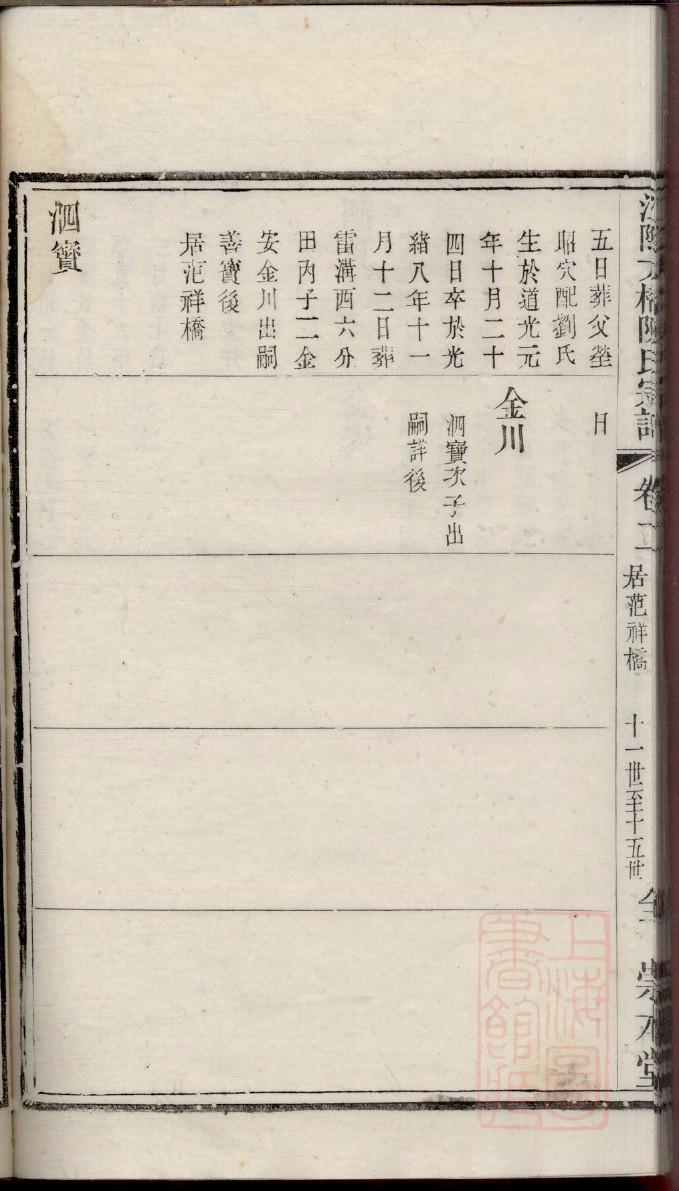 五日葬父塋
昭穴配劉氏
生於道光元
年十月二十
四日卒於光
緒八年十一
月十二日葬
雷溝西六分
田內子二金
安金川出嗣
善寶後
居范祥橋
泗寶
日
金川
泗寶次子出
嗣詳後
陳氏宗譜
卷二
居范祥橋
十一世至十五世
崇本堂
上海圖書館藏